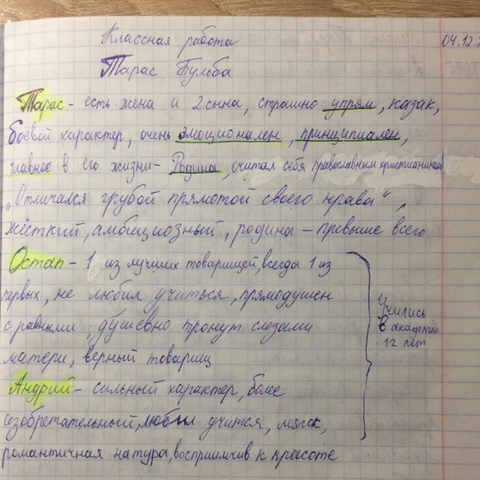 Классная работа
04.12.2
Тарас Бульба
Тарас - есть жена и 2 сына, страшно упрям, казак,
боевой характер, очень эмоционален, принципиален,
главное в его жизни - Родина, считал себя православным христианином
„Отличался грубой прямотой своего нрава",
жёсткий, амбициозный, родина - превыше всего
Остап - 1 из лучших товарищей, всегда 1 из
первых, не любил учиться, прямодушен
с равными, душевно тронут слезами
матери, верный товарищ
Учились
в академии
12 лет
Андрий - сильный характер, более
изобретательный, любил учится, мягк,
романтичная натура, восприимчив к красоте